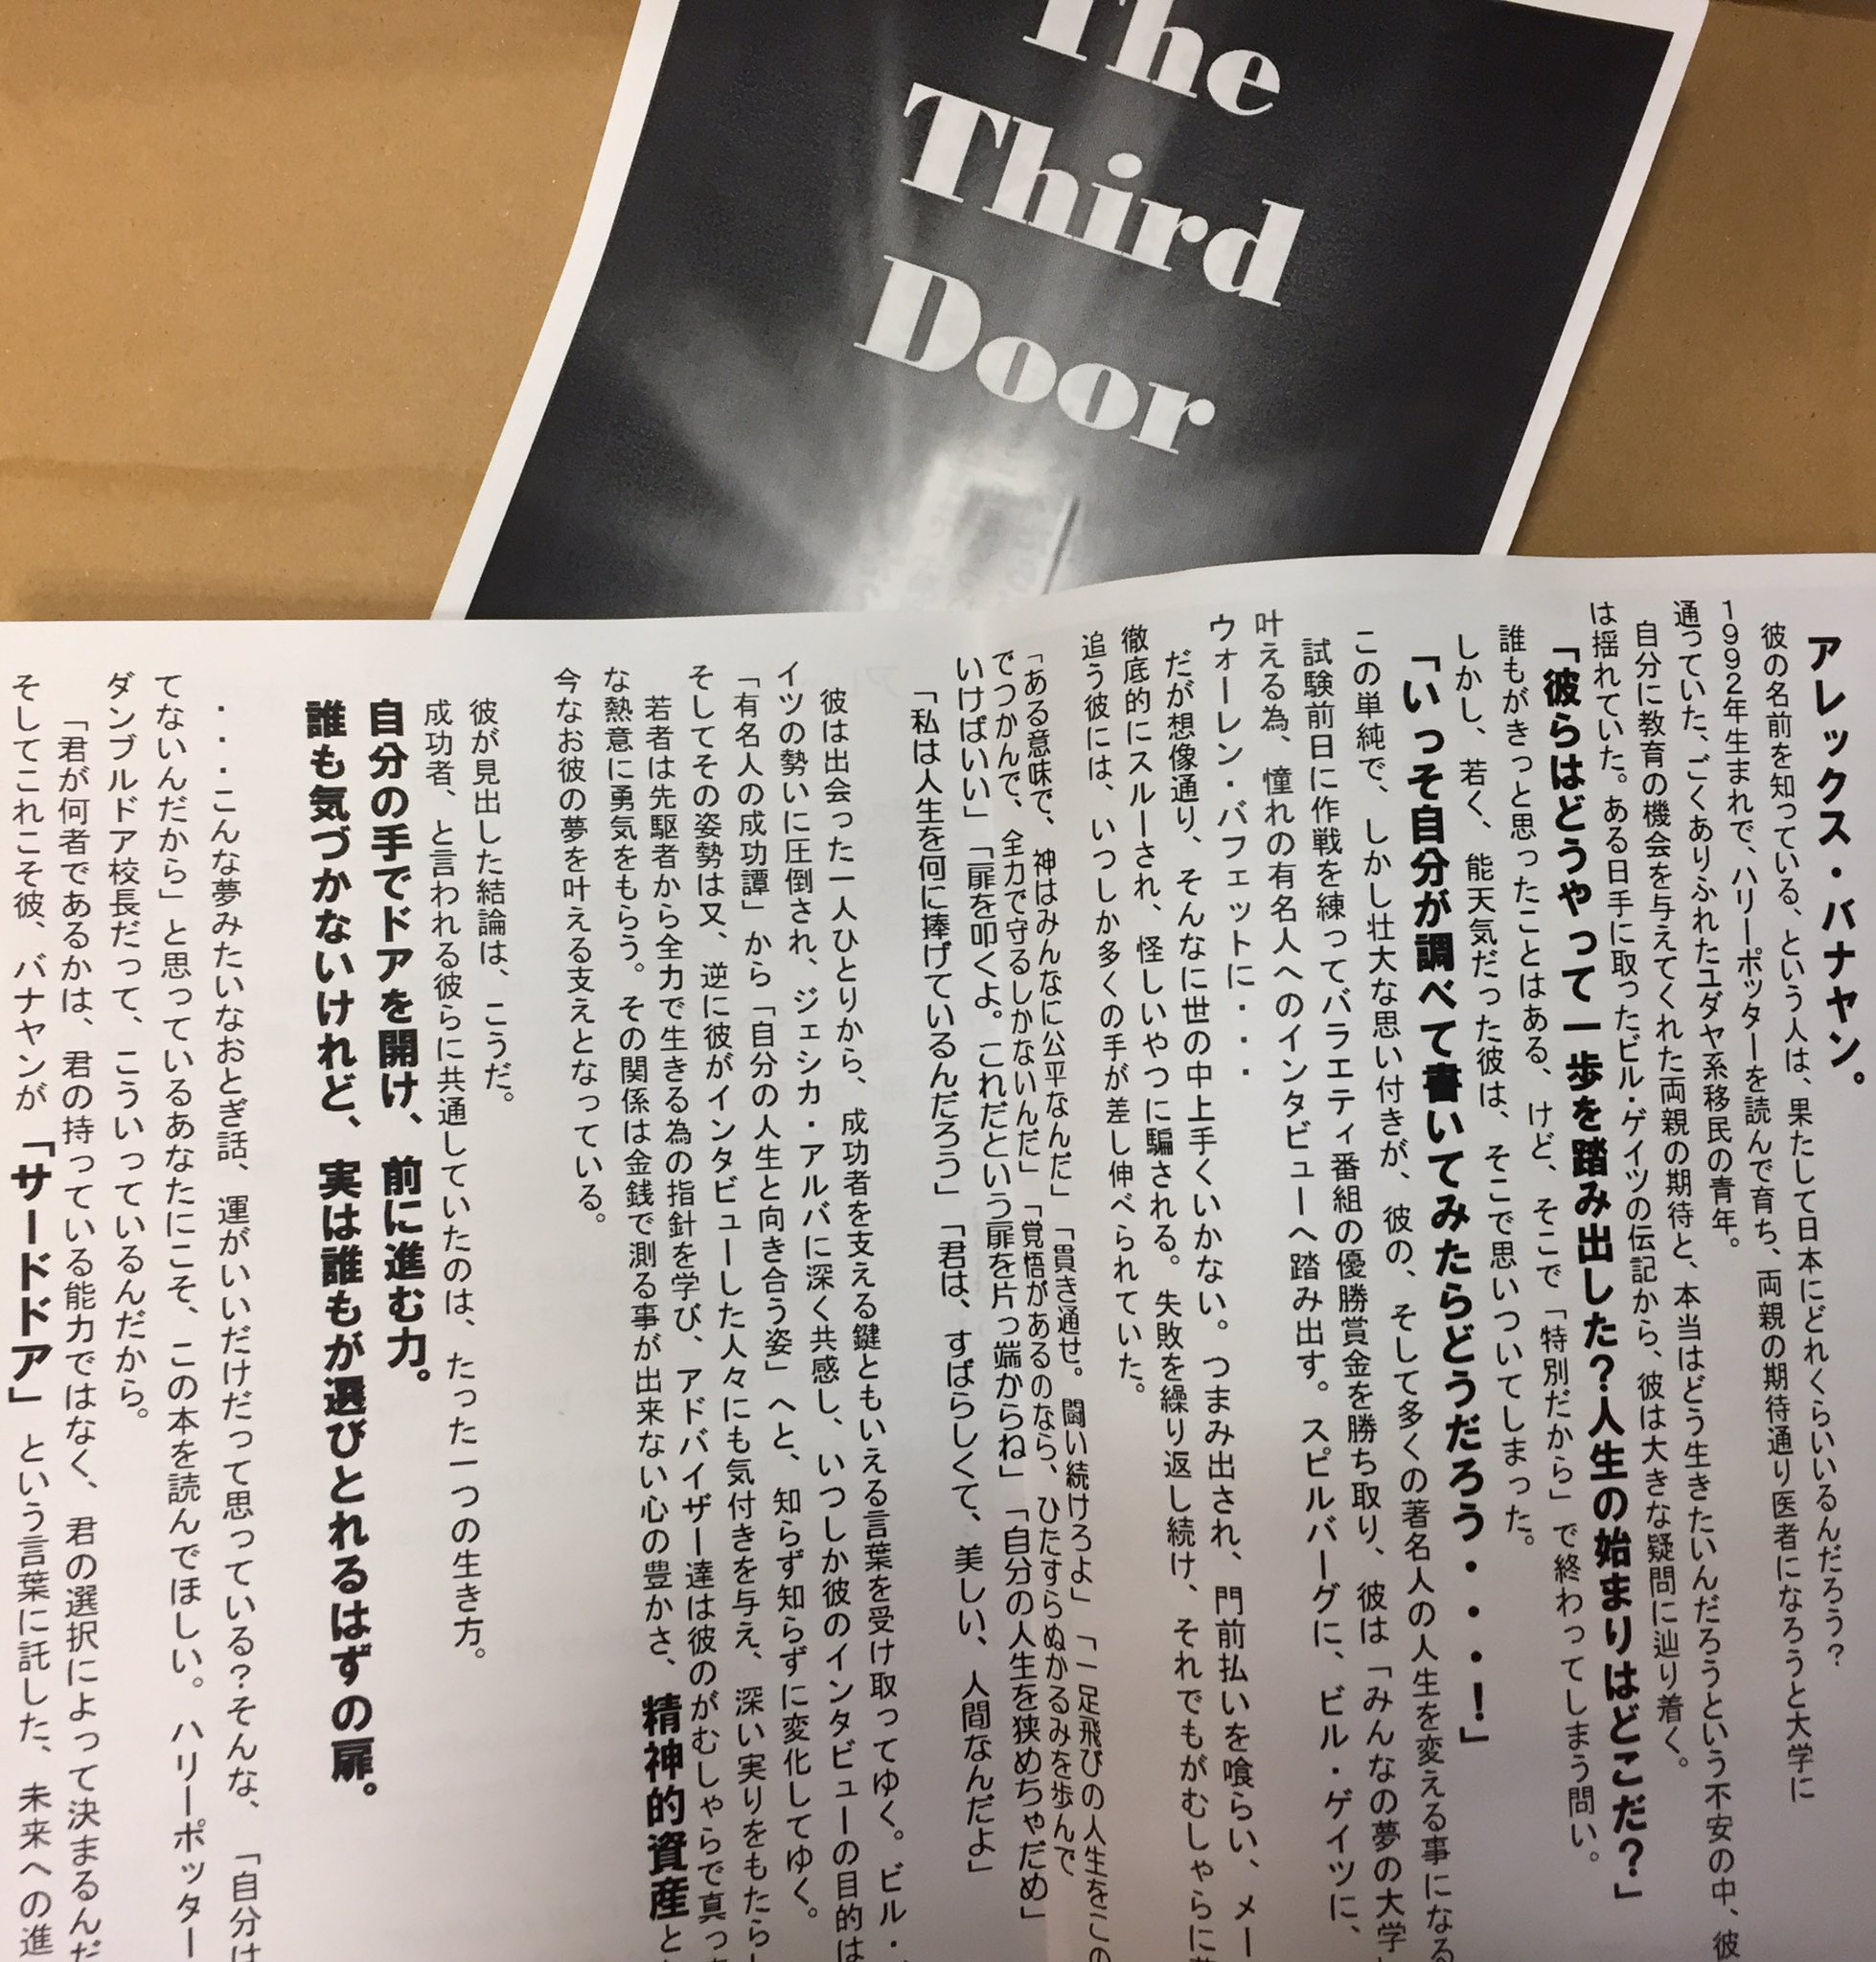 The
Third
Door
アレックス・バナヤン。
彼の名前を知っている、という人は、果たして日本にどれくらいいるんだろう？
1992年生まれで、ハリーポッターを読んで育ち、両親の期待通り医者になろうと大学に
通っていた、ごくありふれたユダヤ系移民の青年。
自分に教育の機会を与えてくれた両親の期待と、本当はどう生きたいんだろうという不安の中、彼
は揺れていた。ある日手に取ったビル・ゲイツの伝記から、彼は大きな疑問に辿り着く。
「彼らはどうやって一歩を踏み出した？人生の始まりはどこだ？」
誰もがきっと思ったことはある、けど、そこで「特別だから」で終わってしまう問い。
しかし、若く、能天気だった彼は、そこで思いついてしまった。
「いっそ自分が調べて書いてみたらどうだろう・・・！」
この単純で、しかし壮大な思い付きが、彼の、そして多くの著名人の人生を変える事になる
試験前日に作戦を練ってバラエティ番組の優勝賞金を勝ち取り、彼は「みんなの夢の大学」
叶える為、憧れの有名人へのインタビューへ踏み出す。スピルバーグに、ビル・ゲイツに、
ウォーレン・バフェットに・・・
だが想像通り、そんなに世の中上手くいかない。つまみ出され、門前払いを喰らい、メー
徹底的にスルーされ、怪しいやつに騙される。失敗を繰り返し続け、それでもがむしゃらに
追う彼には、いつしか多くの手が差し伸べられていた。
「ある意味で、神はみんなに公平なんだ」「貫き通せ。闘い続けろよ」「一足飛びの人生をこの
でつかんで、全力で守るしかないんだ」「覚悟があるのなら、ひたすらぬかるみを歩んで
いけばいい」「扉を叩くよ。これだという扉を片っ端からね」「自分の人生を狭めちゃだめ」
「私は人生を何に捧げているんだろう」「君は、すばらしくて、美しい、人間なんだよ」
彼は出会った一人ひとりから、成功者を支える鍵ともいえる言葉を受け取ってゆく。ビル・
イツの勢いに圧倒され、ジェシカ・アルバに深く共感し、いつしか彼のインタビューの目的は
「有名人の成功譚」から「自分の人生と向き合う姿」へと、知らず知らずに変化してゆく。
そしてその姿勢は又、逆に彼がインタビューした人々にも気付きを与え、深い実りをもたらし
若者は先駆者から全力で生きる為の指針を学び、アドバイザー達は彼のがむしゃらで真っ
な熱意に勇気をもらう。その関係は金銭で測る事が出来ない心の豊かさ、精神的資産と
今なお彼の夢を叶える支えとなっている。
彼が見出した結論は、こうだ。
成功者、と言われる彼らに共通していたのは、たった一つの生き方。
自分の手でドアを開け、前に進む力。
誰も気づかないけれど、実は誰もが選びとれるはずの扉。
・・・こんな夢みたいなおとぎ話、運がいいだけだって思っている？そんな、「自分は
てないんだから」と思っているあなたにこそ、この本を読んでほしい。ハリーポッター
ダンブルドア校長だって、こういっているんだから。
「君が何者であるかは、君の持っている能力ではなく、君の選択によって決まるんだ
そしてこれこそ彼、バナヤンが「サードドア」という言葉に託した、未来への進